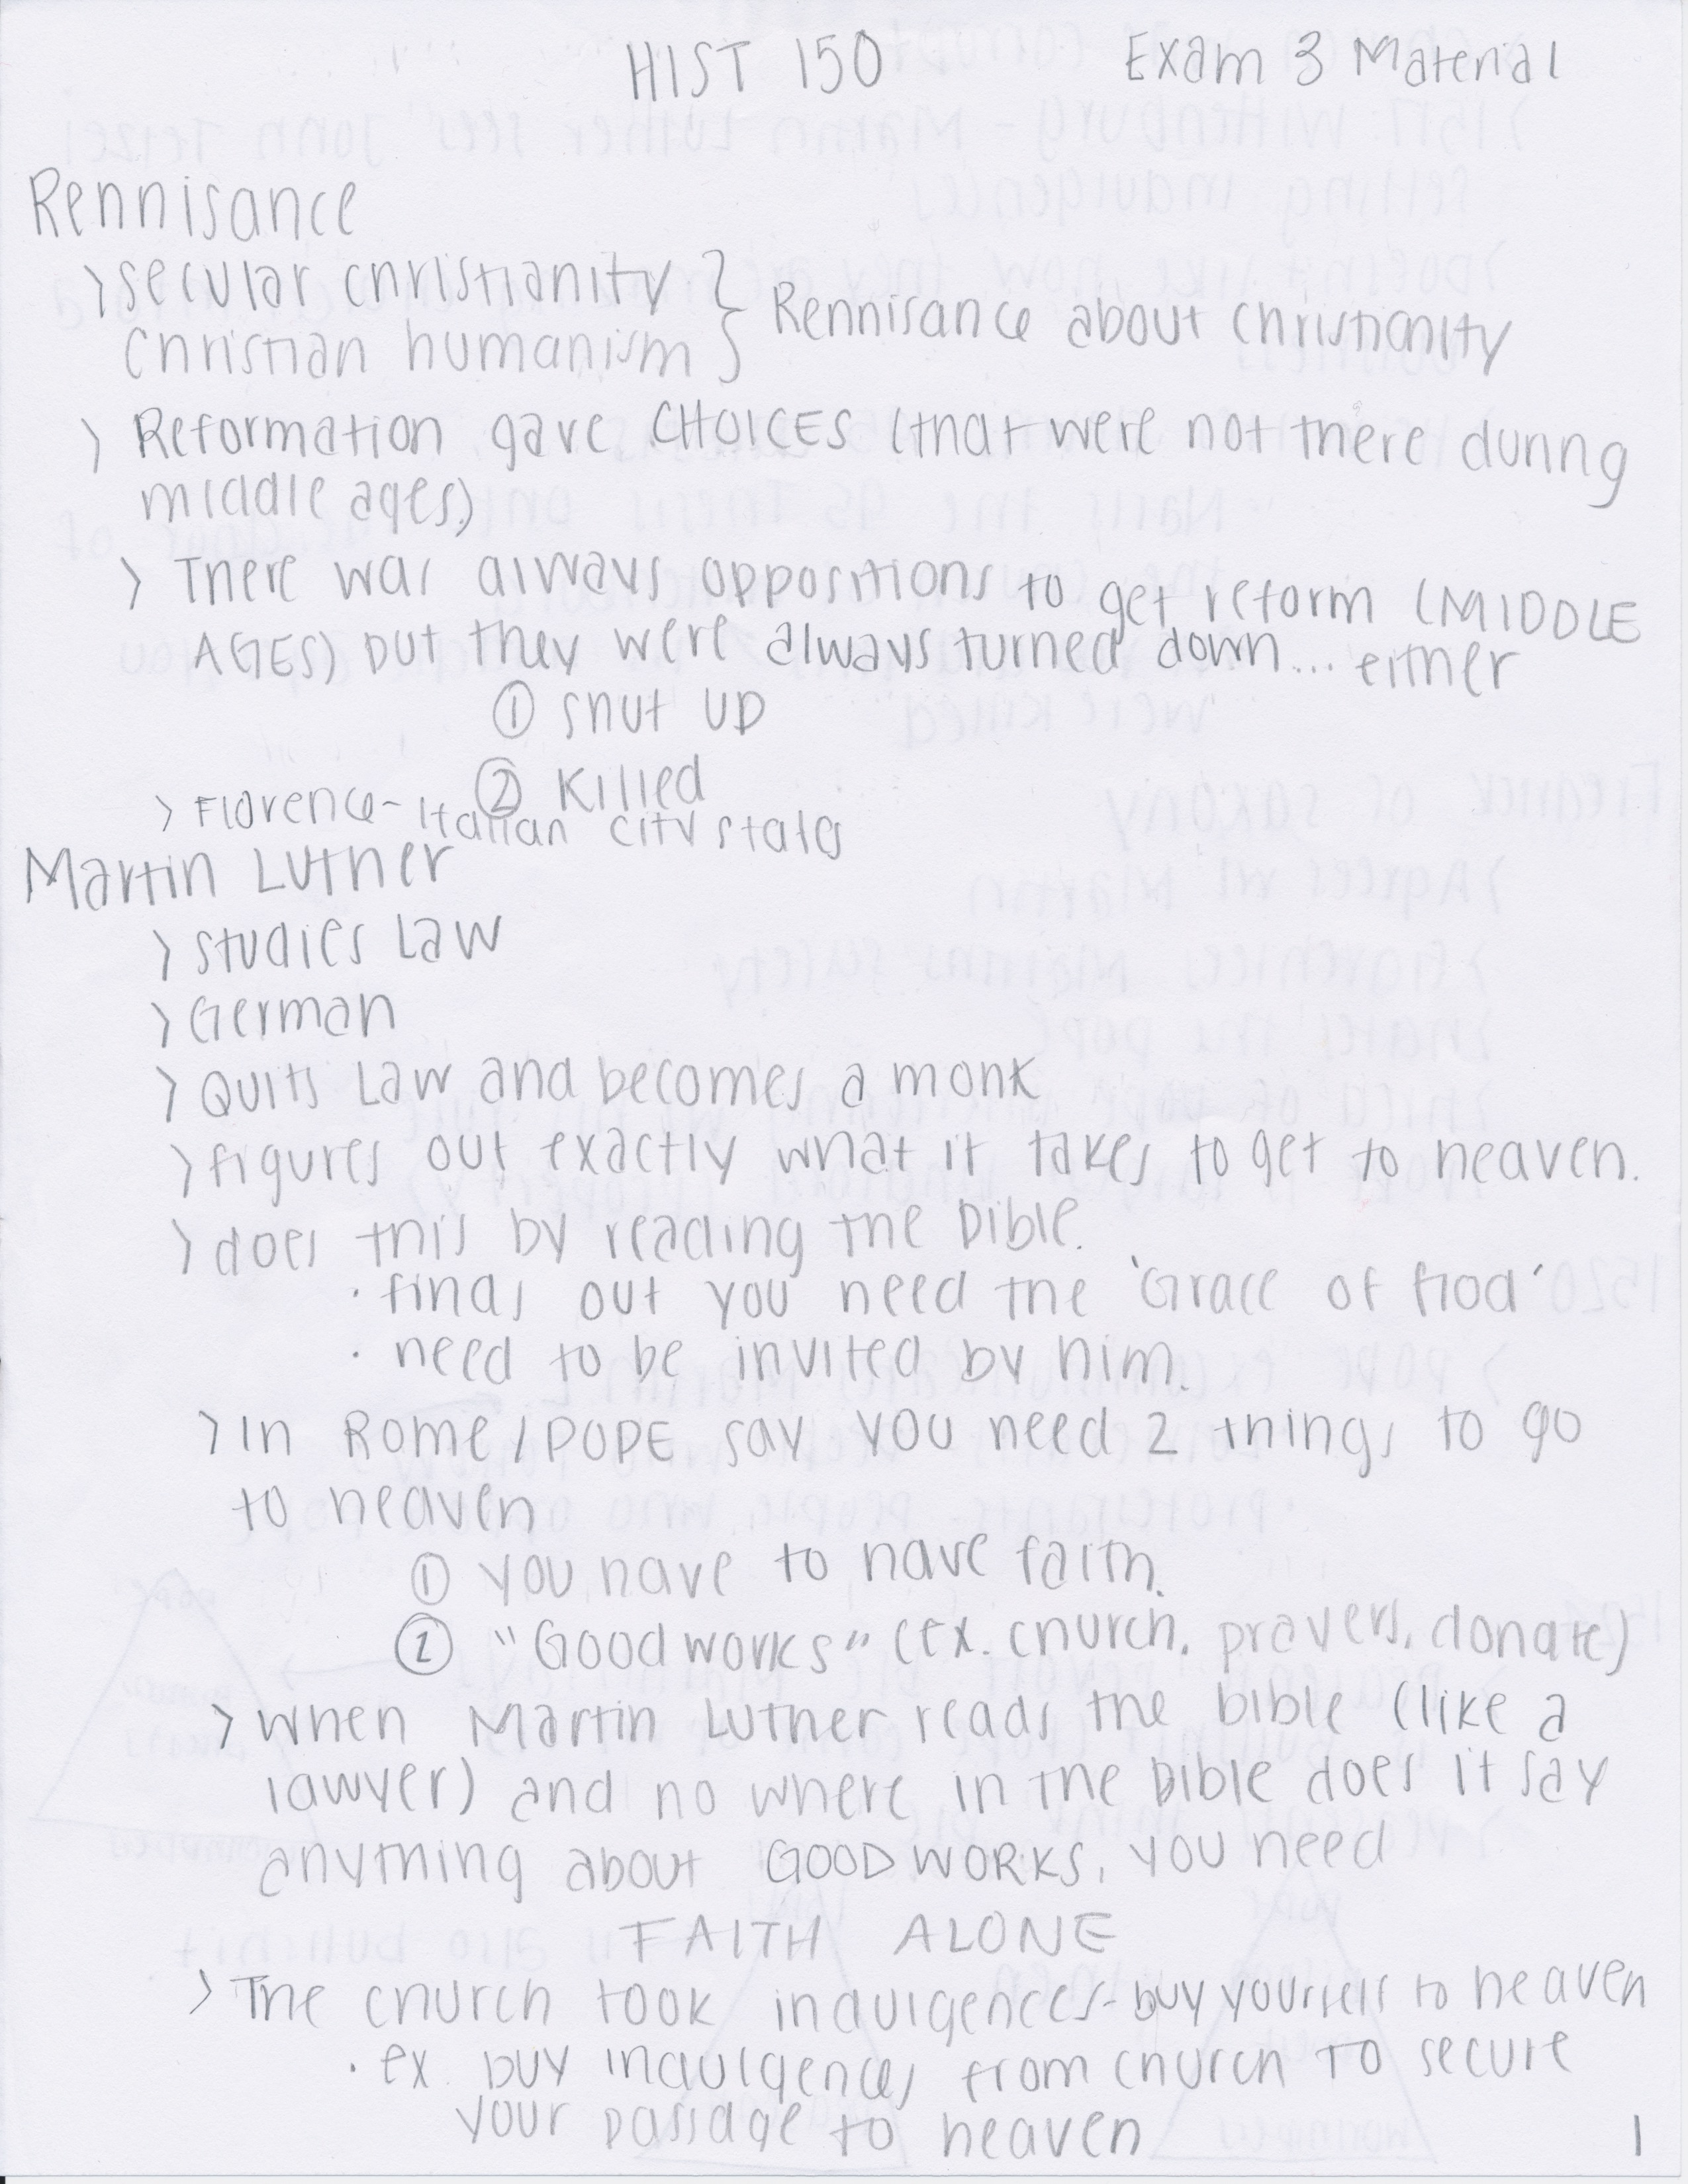 HIST 150 Exam 3 Material
Rennisance
> secular christianity }
christian humanism } Rennisance about christianity
> Reformation gave CHOICES (that were not there during
middle ages)
> There was always oppositions to get reform (MIDDLE
AGES) but they were always turned down... either
① shut up
② killed
> Florence - Italian city states
Martin Luther
> studies Law
> German
> Quits Law and becomes a monk
> figures out exactly what it takes to get to heaven.
> does this by reading the bible.
· finds out you need the 'Grace of God'
· need to be invited by him.
> In Rome / POPE say you need 2 things to go
to heaven
① you have to have faith.
② "Good works" (ex. church, prayers, donate)
> when Martin Luther reads the bible (like a
lawyer) and no where in the bible does it say
anything about GOOD WORKS, you need
FAITH ALONE
> The church took indulgences - buy yourself to heaven
· ex. buy indulgences from church to secure
your passage to heaven
1